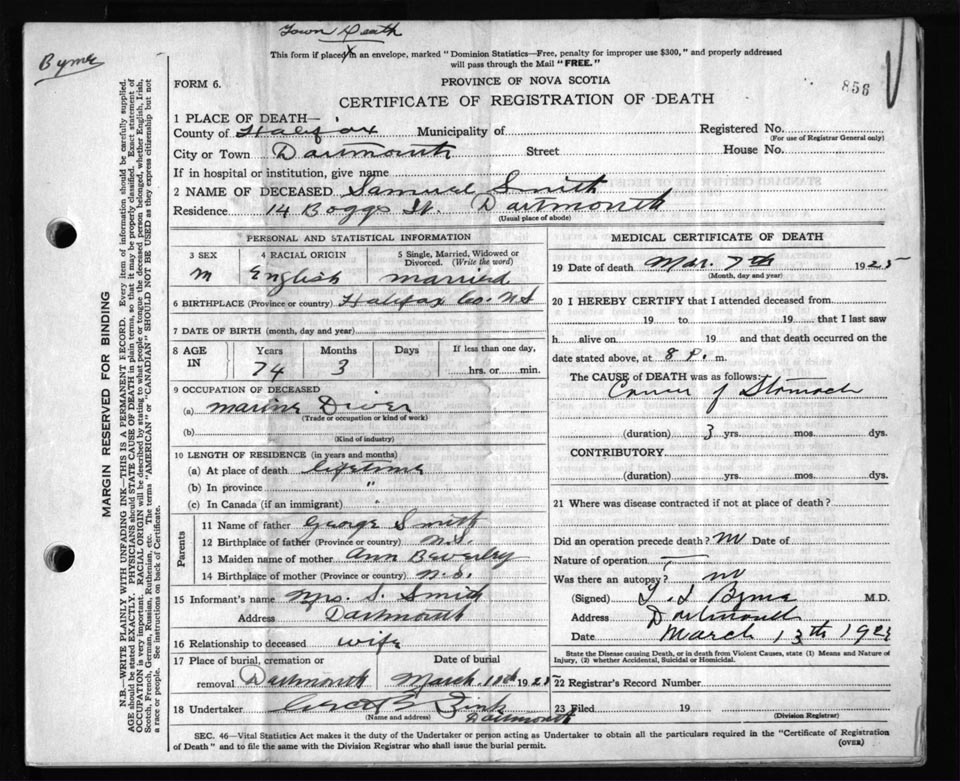 Town Death
Byrne
This form if placed in an envelope, marked "Dominion Statistics—Free, penalty for improper use $300," and properly addressed
will pass through the Mail "FREE."
FORM 6.
PROVINCE OF NOVA SCOTIA
856
CERTIFICATE OF REGISTRATION OF DEATH
1 PLACE OF DEATH—
County of Halifax Municipality of Registered No.
(For use of Registrar General only)
City or Town Dartmouth Street House No.
If in hospital or institution, give name
2 NAME OF DECEASED Samuel Smith
Residence 14 Boggs St. Dartmouth
(Usual place of abode)
PERSONAL AND STATISTICAL INFORMATION
3 SEX 4 RACIAL ORIGIN 5 Single, Married, Widowed or
Divorced. (Write the word)
M English married
6 BIRTHPLACE (Province or country) Halifax Co. N.S
7 DATE OF BIRTH (month, day and year)
8 AGE IN Years Months Days If less than one day,
74 3 hrs. or min.
9 OCCUPATION OF DECEASED
(a) marine Diver
(Trade or occupation or kind of work)
(b)
(Kind of industry)
10 LENGTH OF RESIDENCE (in years and months)
(a) At place of death lifetime
(b) In province "
(c) In Canada (if an immigrant) "
Parents
11 Name of father George Smith
12 Birthplace of father (Province or country) N.S.
13 Maiden name of mother Ann Beverley
14 Birthplace of mother (Province or country) N.S.
15 Informant's name Mrs. S. Smith
Address Dartmouth
16 Relationship to deceased wife
17 Place of burial, cremation or Date of burial
removal Dartmouth March 1925
18 Undertaker Zink
(Name and address) Dartmouth
MEDICAL CERTIFICATE OF DEATH
19 Date of death Mar. 7th 1925
(Month, day and year)
20 I HEREBY CERTIFY that I attended deceased from
19 to 19 that I last saw
h alive on 19 and that death occurred on the
date stated above, at 8 P. m.
The CAUSE of DEATH was as follows:
Cancer of Stomach
(duration) 3 yrs. mos. dys.
CONTRIBUTORY
(duration) yrs. mos. dys.
21 Where was disease contracted if not at place of death?
Did an operation precede death? no Date of
Nature of operation
Was there an autopsy? no
(Signed) Byrne M.D.
Address Dartmouth
Date March 13th 192
State the Disease causing Death, or in death from Violent Causes, state (1) Means and Nature of
Injury, (2) whether Accidental, Suicidal or Homicidal.
22 Registrar's Record Number
23 Filed 19
(Division Registrar)
SEC. 46—Vital Statistics Act makes it the duty of the Undertaker or person acting as Undertaker to obtain all the particulars required in the "Certificate of Registration
of Death" and to file the same with the Division Registrar who shall issue the burial permit.
(OVER)
MARGIN RESERVED FOR BINDING
N.B.—WRITE PLAINLY WITH UNFADING INK—THIS IS A PERMANENT RECORD. Every item of information should be carefully supplied.
AGE should be stated EXACTLY. PHYSICIANS should STATE CAUSE OF DEATH in plain terms, so that it may be properly classified. Exact statement of
OCCUPATION is very important. RACIAL ORIGIN will be described by stating to what people or tongue the deceased person belonged, whether English, Irish,
Scotch, French, German, Russian, Ruthenian, etc. The terms "AMERICAN" or "CANADIAN" SHOULD NOT BE USED as they express citizenship but not
a race or people. See instructions on back of Certificate.